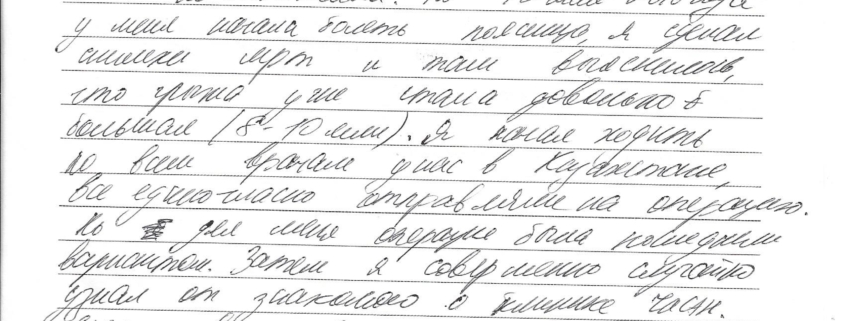 у меня начала болеть поясница, я сделал
снимки мрт и там выяснилось,
что грыжа уже стала довольно
большая (8-10 мм). Я начал ходить
по всем врачам у нас в Казахстане,
все единогласно отправляли на операцию.
Но для меня операция была последним
вариантом. Затем я совершенно случайно
узнал от знакомого о клинике